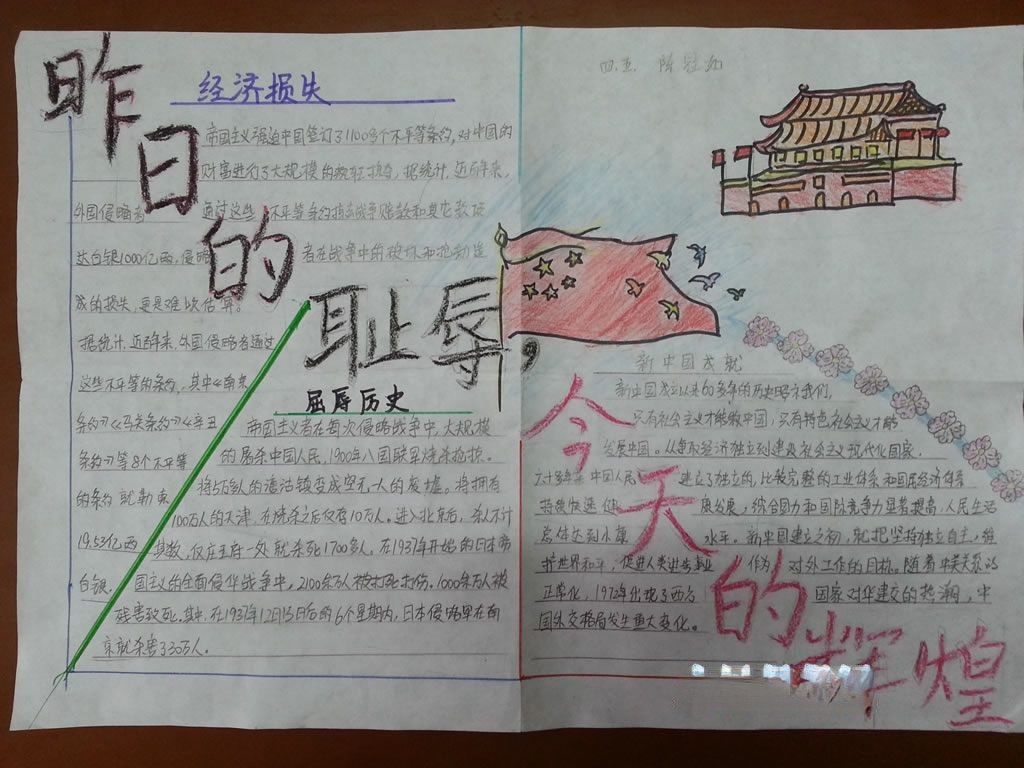 昨日的耻辱,
今天的辉煌
经济损失
帝国主义强迫中国签订了1100多个不平等条约,对中国的
财富进行了大规模的 据统计,近百年来,
外国侵略者 通过这些 不平等条约 战争赔款和其它款项
达白银1000亿两,侵略 者在战争中的破坏和 造
成的损失,更是难以估算。
据统计,近百年来,外国侵略者通过
这些不平等的条约,其中《南京
条约》《马关条约》《辛丑
条约》等8个不平等
的条约就勒索
19.53亿两
白银.
屈辱历史
帝国主义者在每次侵略战争中,大规模
的屠杀中国人民,1900年八国联军烧杀抢掠。
将5万多人的塘沽镇变成空无一人的废墟。将拥有
100万人的天津,在烧杀之后仅存10万人。进入北京后,杀人不计
其数,仅庄王府一处就杀死1700多人。在1937年开始的日本帝
国主义的全面侵华战争中,2100余万人被打死打伤,1000余万人被
残害致死,其中,在1937年12月13日后的6个星期内,日本侵略军在南
京就杀害了30万人.
四.五.
新中国成就
新中国成立以来60多年的历史昭示我们,
只有社会主义才能救中国,只有特色社会主义才能
发展中国。从争取经济独立到建设社会主义现代化国家.
建立了独立的,比较完整的工业体系和国民经济体系
持续快速健 康发展,综合国力和国际竞争力显著提高,人民生活
总体达到小康 水平。新中国建立之初,就把坚持独立自主,维
护世界和平,促进人类进步事业 作为 对外工作的目标。随着中美关系的
正常化,1972年出现了西方 国家对华建交的热潮,中
国外交格局发生重大变化。